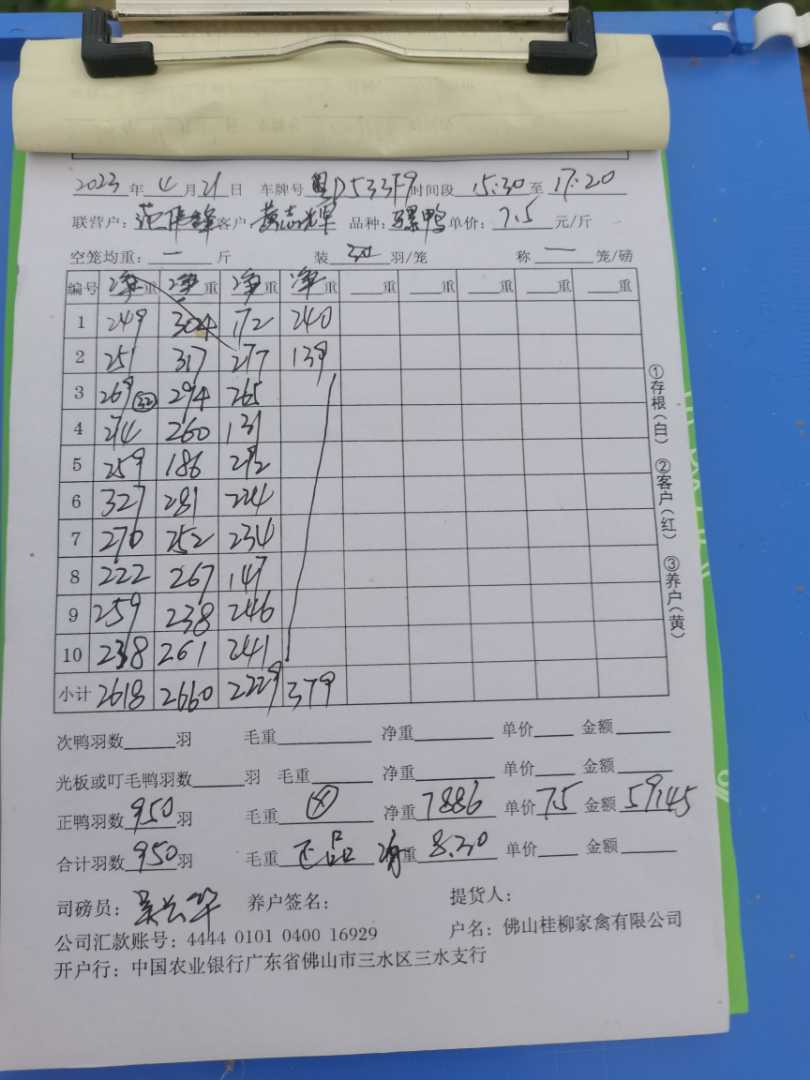 2023 年 4 月 21 日 车牌号 粤D533F9 时间段 15:30 至 17:20
联营户: 范 锋 客户: 黄志辉 品种: 骡鸭 单价: 7.5 元/斤
空笼均重: 一 斤 装 羽/笼 称 一 笼/磅
编号 净重 净重 净重 净重 重 重 重 重 重
1 249 304 172 240
2 251 317 277 139
3 269 (32) 294 265
4 274 260 131
5 259 186 292
6 327 281 224
7 270 252 234
8 222 267 147
9 259 238 246
10 238 261 241
小计 2618 2660 2229 379
①存根(白) ②客户(红) ③养户(黄)
次鸭羽数 羽 毛重 净重 单价 金额
光板或叮毛鸭羽数 羽 毛重 净重 单价 金额
正鸭羽数 950 羽 毛重 净重 7886 单价 7.5 金额 59145
合计羽数 950 羽 毛重 正品 净重 8.30 单价 金额
司磅员: 养户签名: 提货人:
公司汇款账号: 4444 0101 0400 16929 户名: 佛山桂柳家禽有限公司
开户行: 中国农业银行广东省佛山市三水区三水支行